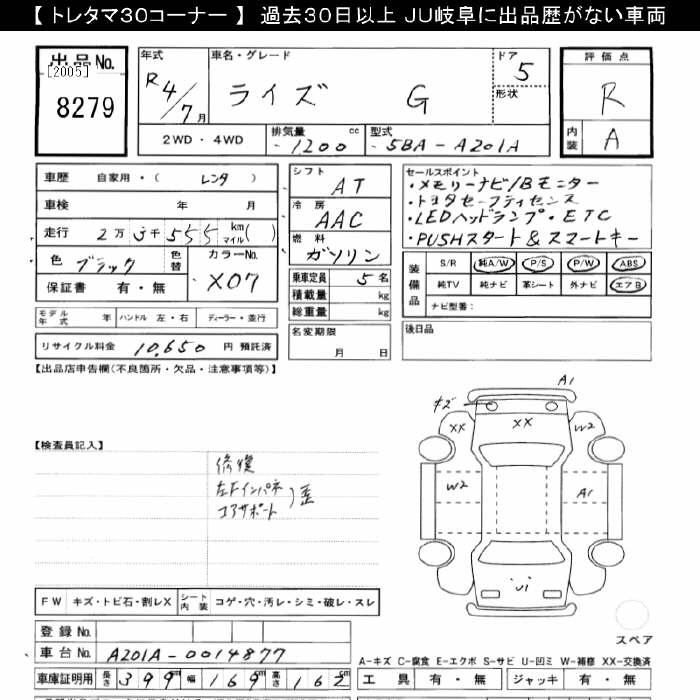 【 トレタマ３０コーナー 】 過去３０日以上 ＪＵ岐阜に出品歴がない車両
出品No.
[2005]
8279
年式
R4/7月
車名・グレード
ライズ G
ドア
5
形状
評価点
R
内装
A
2WD・4WD
排気量
1200 cc
型式
5BA-A201A
車歴 自家用・( レンタ )
車検 年 月
走行 2万3千555 km マイル( )
色 ブラック 色替
カラーNo.
X07
保証書 有・無
モデル年式 年 ハンドル 左・右 ディーラー・並行
リサイクル料金 10,650 円 預託済
シフト
AT
冷房
AAC
燃料
ガソリン
乗車定員 5名
積載量 kg
総重量 kg
名変期限
月 日
セールスポイント
・メモリーナビ/Bモニター
・トヨタセーフティセンス
・LEDヘッドランプ・ETC
・PUSHスタート&スマートキー
装備品
S/R 純A/W P/S P/W ABS
純TV 純ナビ 革シート 外ナビ エアB
ナビ型番：
後日品
【出品店申告欄(不良箇所・欠品・注意事項等)】
【検査員記入】
修復
左Fインパネ
コアサポート
)歪
A1
キズ
XX
XX
W2
W2
A1
U1
スペア
FW キズ・トビ石・割レX シート内装 コゲ・穴・汚レ・シミ・破レ・スレ
登録No.
車台No. A201A-0014877
車庫証明用 長さ 399cm 幅 169cm 高さ 162cm
A-キズ C-腐食 E-エクボ S-サビ U-凹ミ W-補修 XX-交換済
工具 有・無 ジャッキ 有・無